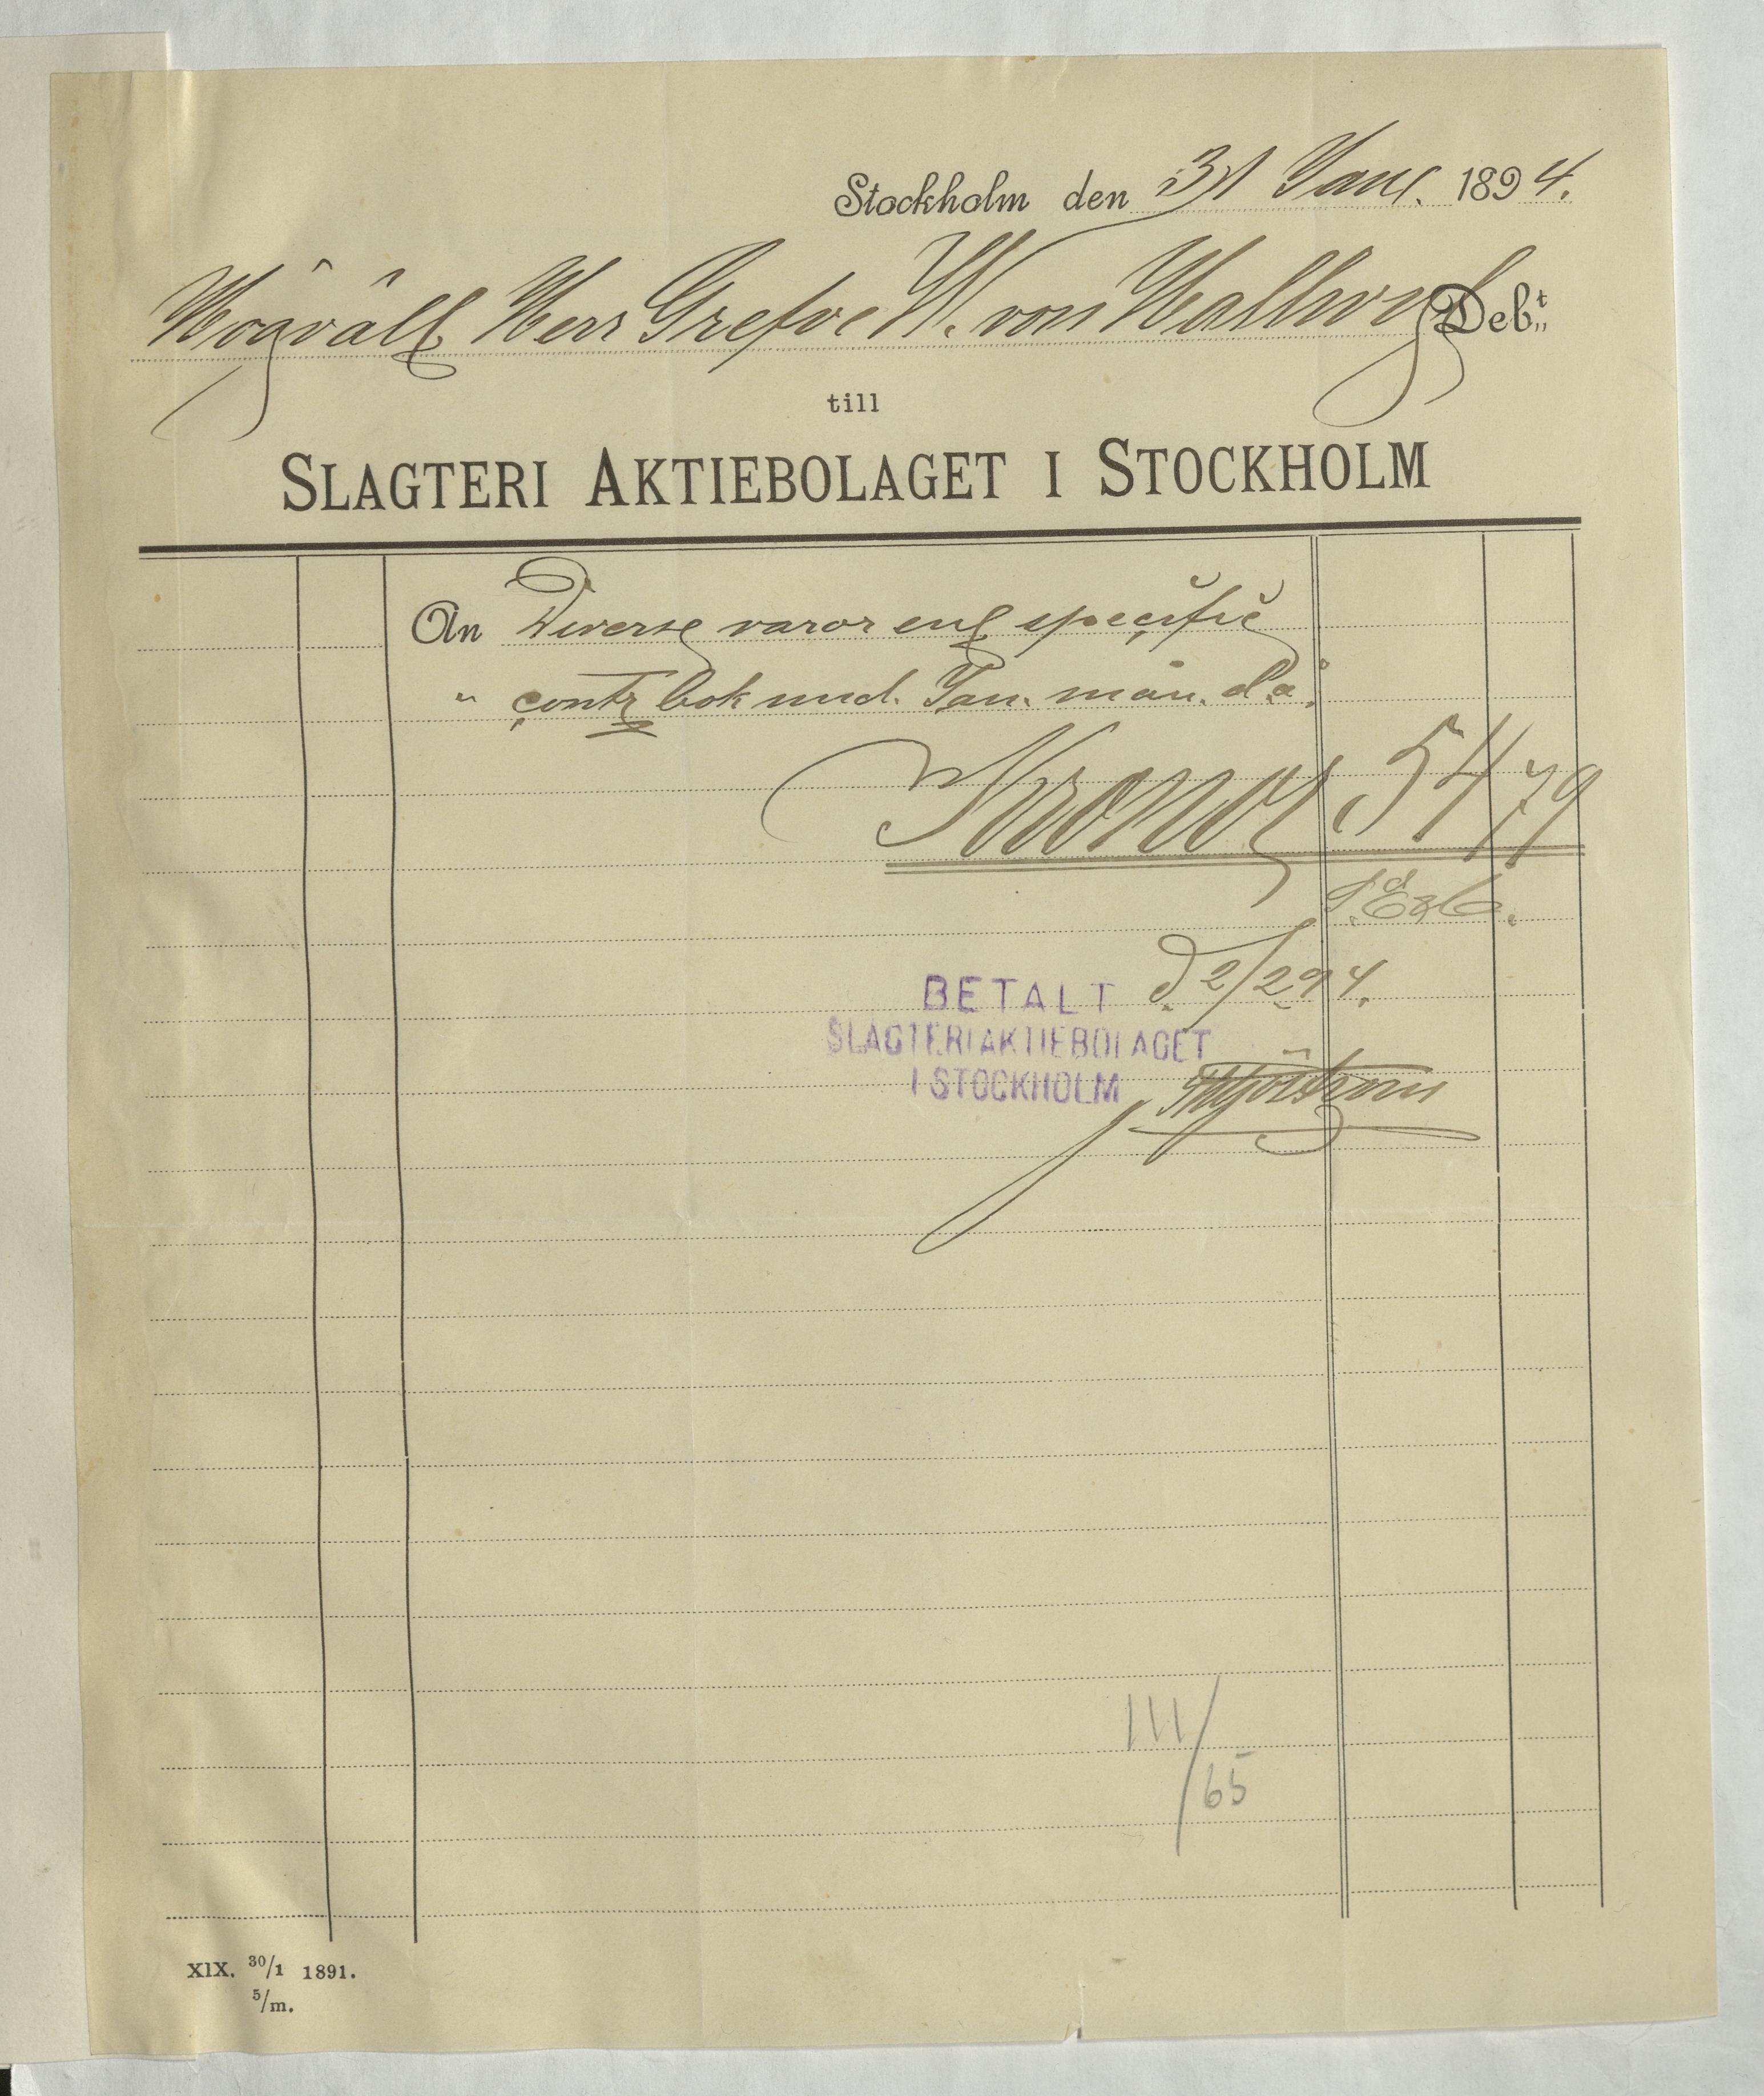 Stockholm den 31 Janr. 1894.
Högväll. Herr Grefve W. von Hallwyl Debt.
till
SLAGTERI AKTIEBOLAGET I STOCKHOLM
An Diverse varor enl specific
" contr bok und. Jan. mån. d.a.
Kronor 54 79
S. E & O.
BETALT d. 2/2 94.
SLAGTERIAKTIEBOLAGET
I STOCKHOLM
111/65
XIX. 30/1 1891.
5/m.